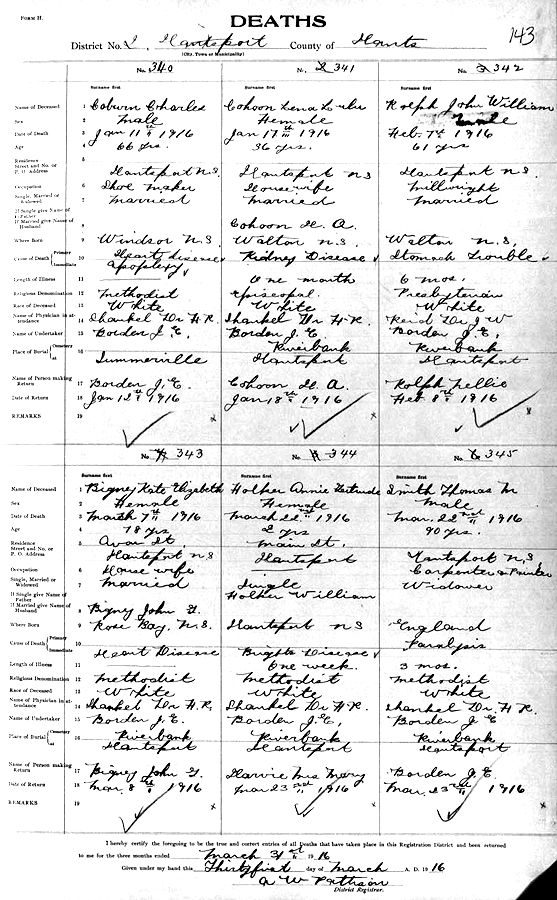 FORM H.
DEATHS
143
District No. 2, Hantsport County of Hants
(City, Town or Municipality)
No. 340 No. 2 341 No. 3 342
Surname first Surname first Surname first
Name of Deceased 1 Coburn Charles Cohoon Lena Lulu Rolph John William
Sex 2 Male Female Male
Date of Death 3 Jan 11th 1916 Jan 17th 1916 Feb. 7th 1916
Age 4 66 yrs. 36 yrs. 61 yrs
Residence
Street and No. or
P. O. Address 5 Hantsport N.S. Hantsport N S Hantsport N S
Occupation 6 Shoe maker Housewife Millwright
Single, Married or
Widowed 7 Married Married Married
If Single give Name of
Father
If Married give Name of
Husband 8 Cohoon H. A.
Where Born 9 Windsor N.S. Walton N.S. Walton N.S.
Cause of Death Primary 10 Heart disease Kidney Disease Stomach Trouble
Immediate apoplexy
Length of Illness 11 One month 6 mos.
Religious Denomination 12 Methodist Episcopal Presbyterian
Race of Deceased 13 White White White
Name of Physician in at-
tendance 14 Shankel Dr H R. Shankel Dr H R. Reid Dr J W
Name of Undertaker 15 Borden J. E. Borden J. E. Borden J. E.
Place of Burial Cemetery 16 Summerville Riverbank Hantsport Riverbank Hantsport
Name of Person making
Return 17 Borden J. E. Cohoon H. A. Rolph Nellie
Date of Return 18 Jan 12th 1916 Jan 18th 1916 Feb 8th 1916
REMARKS 19
No. 4 343 No. 5 344 No. 6 345
Surname first Surname first Surname first
Name of Deceased 1 Bigney Kate Elizabeth Holker Annie Gertrude Smith Thomas M
Sex 2 Female Female Male
Date of Death 3 March 7th 1916 March 22nd 1916 Mar. 22nd 1916
Age 4 78 yrs 2 yrs 90 yrs.
Residence
Street and No. or
P. O. Address 5 Avon St. Hantsport N S Main St. Hantsport Hantsport N.S
Occupation 6 House wife Carpenter & Painter
Single, Married or
Widowed 7 Married Single Widower
If Single give Name of
Father Holker William
If Married give Name of
Husband 8 Bigney John G.
Where Born 9 Rose Bay. N.S. Hantsport N S England
Cause of Death Primary 10 Paralysis
Immediate Heart Disease Brights Disease
Length of Illness 11 One week. 3 mos.
Religious Denomination 12 Methodist Methodist Methodist
Race of Deceased 13 White White White
Name of Physician in at-
tendance 14 Shankel Dr H R. Shankel Dr H R. Shankel Dr H. R.
Name of Undertaker 15 Borden J. E. Borden J. E. Borden J E
Place of Burial Cemetery 16 Riverbank Hantsport Riverbank Hantsport Riverbank Hantsport
Name of Person making
Return 17 Bigney John G. Harvie Mrs Mary Borden J. E.
Date of Return 18 Mar. 8th 1916 Mar 23rd 1916 Mar. 23rd 1916
REMARKS 19
I hereby certify the foregoing to be the true and correct entries of all Deaths that have taken place in this Registration District and been returned
to me for the three months ended March 31st 1916
Given under my hand this Thirty first day of March A. D. 1916
A W Pattison
District Registrar.